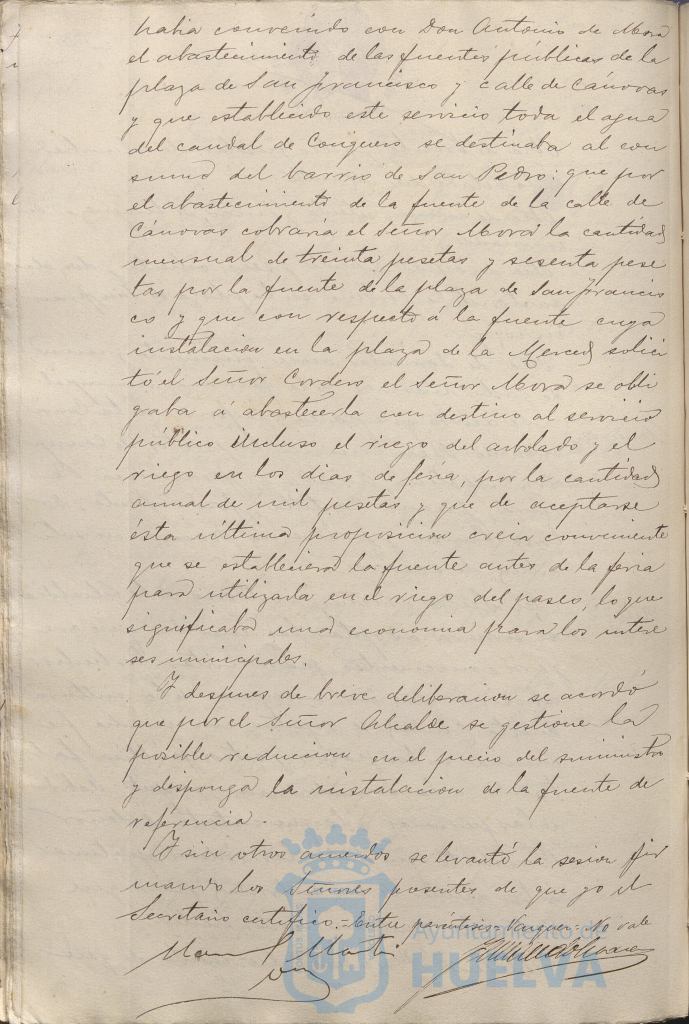 habia convenido con Don Antonio de Mora
el abastecimiento de las fuentes públicas de la
plaza de San Francisco y calle de Cánovas
y que establecido este servicio toda el agua
del caudal de Conquero se destinaba al con
sumo del barrio de San Pedro: que por
el abastecimiento de la fuente de la calle de
Cánovas cobraria el Señor Mora la cantidad
mensual de treinta pesetas y sesenta pese
tas por la fuente de la plaza de San Francis
co y que con respecto á la fuente cuya
instalacion en la plaza de la Merced solici
tó el Señor Cordero el Señor Mora se obli
gaba á abastecerla con destino al servicio
público incluso el riego del arbolado y el
riego en los dias de feria, por la cantidad
anual de mil pesetas y que de aceptarse
ésta última proposicion creia conveniente
que se estableciera la fuente antes de la feria
para utilizarla en el riego del paseo, lo que
significaba una economia para los intere
ses municipales.
Y despues de breve deliberacion se acordó
que por el Señor Alcalde se gestione la
posible reduccion en el precio del suministro
y disponga la instalacion de la fuente de
referencia.
Y sin otros acuerdos se levantó la sesion fir
mando los Señores presentes de que yo el
Secretario certifico.=Entre paréntesis= =No vale
Martin
Ayuntamiento de
HUELVA